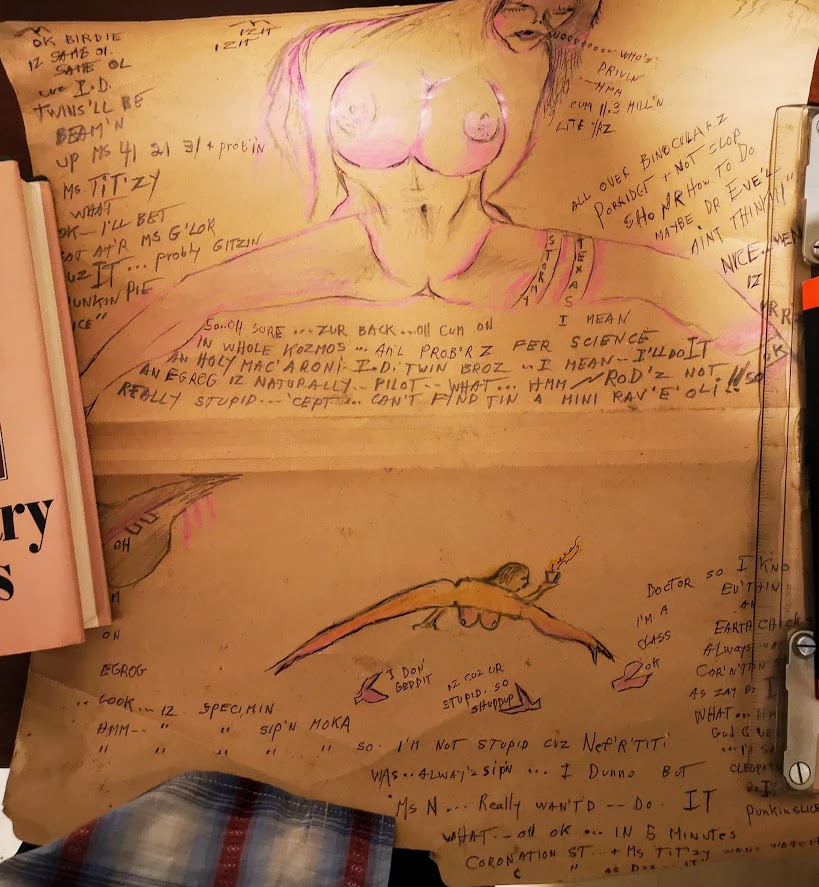 OK BIRDIE
IZ SAME OL
SAME OL
CUZ I.D.
TWINS'LL BE
BEAM'N
UP MS 41 21 31 + prob'in
Ms. TiT'ZY
WHAT
OK-- I'LL BET
AT'R MS G'LOK
UZ IT ... probly GITZIN
UNKIN PIE
ICE"
IZ IT
IZ IT
WHO'S
DRIVIN
HMM
CUM 11.3 MILL'N
LITE YAZ
ALL OVER BINOCULARZ
PORRIDGE + NOT SLOP
SHO MR HOW TO DO
MAYBE DR EVE'LL
AINT THINKN"
NICE... MEN
IZ
STORMY
TEXAS
OK
I MEAN
SO..OH SURE ... ZUR BACK...OH CUM ON
IN WHOLE KOZMOS ... AN'L PROB'R Z FER SCIENCE
AN HOLY MAC'ARONI-- I.D. TWIN BROZ -- I MEAN -- I'LL DO IT
AN EGROG IZ NATURALLY.. PILOT -- WHAT... HMM ROD'Z NOT !!! SO
REALLY STUPID --- 'CEPT ... CAN'T FYND TIN A MINI RAV'E'OLI !!
ry
s
OH
M
ON
EGROG
LOOK... IZ SPECIMIN
HMM-- " " SIP'N MOKA
" " " " " SO
I DON'
GEDDIT
IZ CUZ UR
STUPID... SO
SHUDDUP
DOCTOR SO I KNO
EV'THIN"
I'M A
CLASS
OK
AN
EARTH CHICKS
ALWAYS
COR'N'TION
AS ZAY DO I
WHAT... HM
GOD G'VE
CLEOP
DO I
PUNKIN SLICE
I'M NOT STUPID CUZ NEF'R'TITI
WAS.. ALWAY'Z SIP'N ... I DUNNO BUT
MS N ... REALLY WAN'T'D -- DO. IT
WHAT -- OH OK ... IN 5 MINUTES
CORONATION ST... + MS TIT'ZY WANS WATCH
C " AS DUZ .. IT"